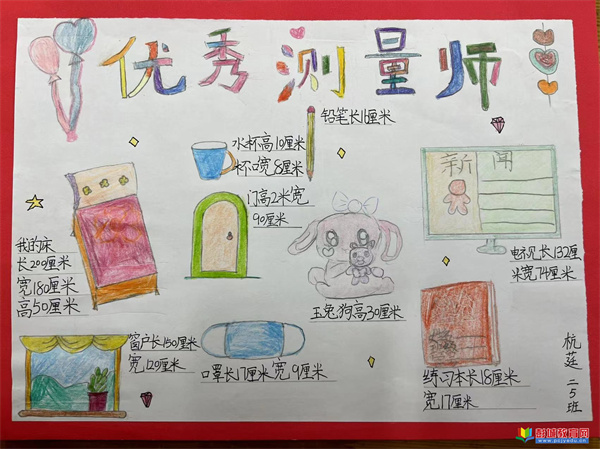 优秀测量师
铅笔长16厘米
水杯高10厘米
杯口宽8厘米
门高2米宽
90厘米
新闻
我的床
长200厘米
宽180厘米
高50厘米
玉兔狗高30厘米
电视长132厘
米宽74厘米
窗户长150厘米
宽120厘米
口罩长17厘米宽9厘米
练习本长18厘米
宽17厘米
杭莛二5班
彭城教育网
www.pcjyedu.cn